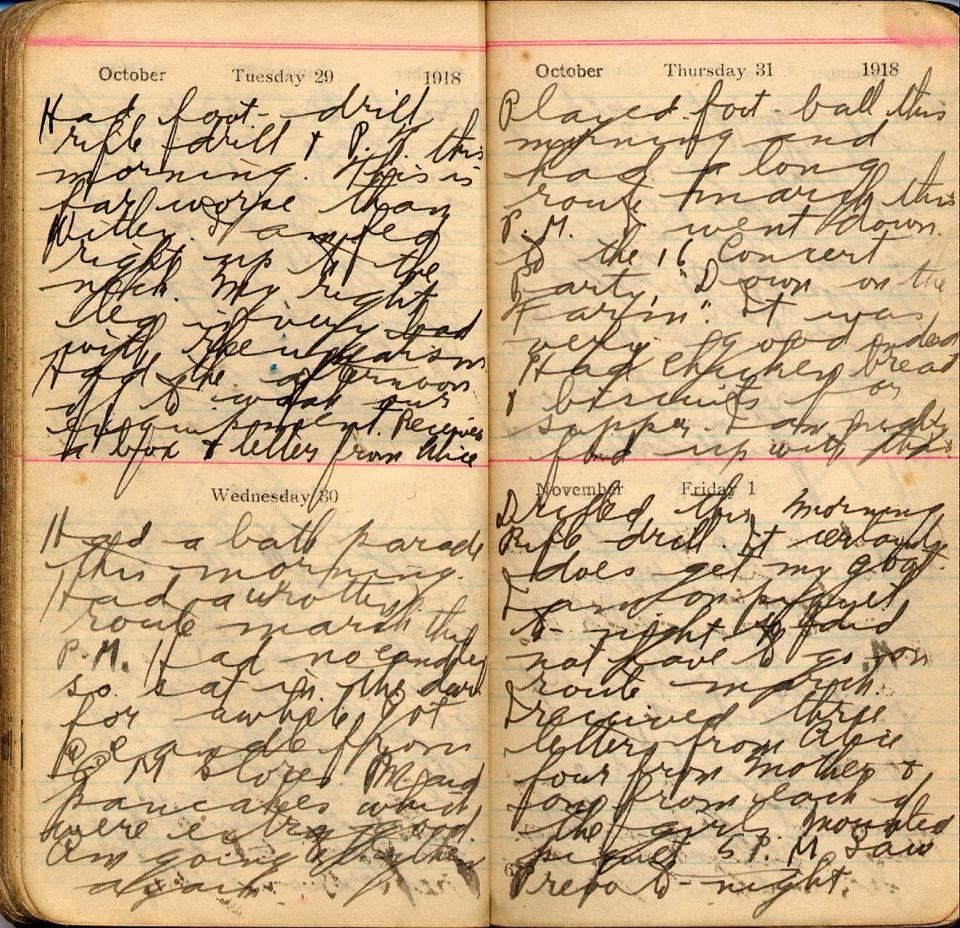 October Tuesday 29 1918
Had foot-drill
rifle drill & P.T. this
morning. This is
far worse than
Witley. I am fed
right up to the
neck. My right
leg is very bad
with rheumatism
Had the afternoon
off to wash our
equipment. Received
a box & letter from Alice
Wednesday 30
Had a bath parade
this morning.
Had a rotten
route march this
P.M. Had no candles
so sat in the dark
for awhile. Got
a candle from
Q M Stores. Made
pancakes which
were extra good.
Am going
again
October Thursday 31 1918
Played foot-ball this
morning and
had a long
route march this
P.M. I went down
to the 16 Concert
Party, "Down on the
Farm". It was
very good indeed
Had chicken bread
& biscuits for
supper. I am pretty
fed up with this
November Friday 1
Drilled this morning
Rifle drill. It certainly
does get my goat.
I am on piquet
to-night so did
not have to go on
route march.
I received three
letters from Alice
four from Mother &
one from each of
the girls. Mounted
piquet 5 P.M. Saw
to-night.